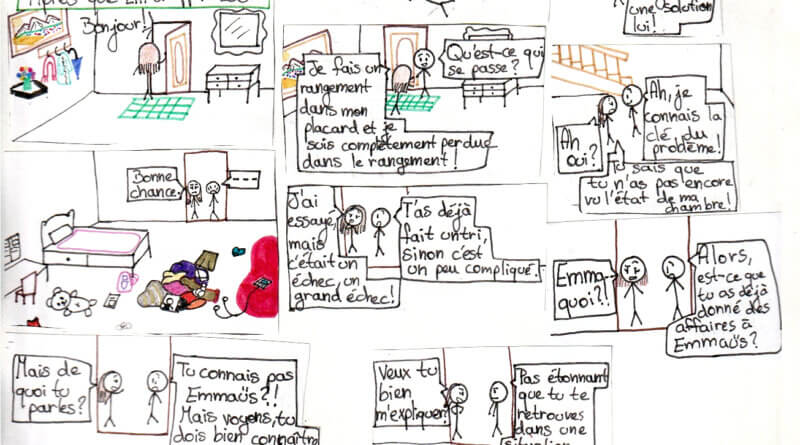 Après que
Bonjour!
Je fais un
rangement
dans mon
placard et je
suis complètement perdue
dans le rangement!
Qu'est-ce qui
se passe?
une solution
lui!
Ah
oui?
Ah, je
connais la
clé du
problème!
Tu sais que
tu n'as pas encore
vu l'état de ma
chambre!
Bonne
chance.
----
J'ai
essayé,
mais
c'était un
échec, un
grand échec!
T'as déjà
fait un tri,
sinon c'est
un peu compliqué.
Emma-
quoi?!
Alors,
est-ce que
tu as déjà
donné des
affaires à
Emmaüs?
Mais de
quoi tu
parles?
Tu connais pas
Emmaüs?!
Mais voyons, tu
dois bien connaître
Veux tu
bien
m'expliquer
Pas étonnant
que tu te
retrouves
dans une
situation